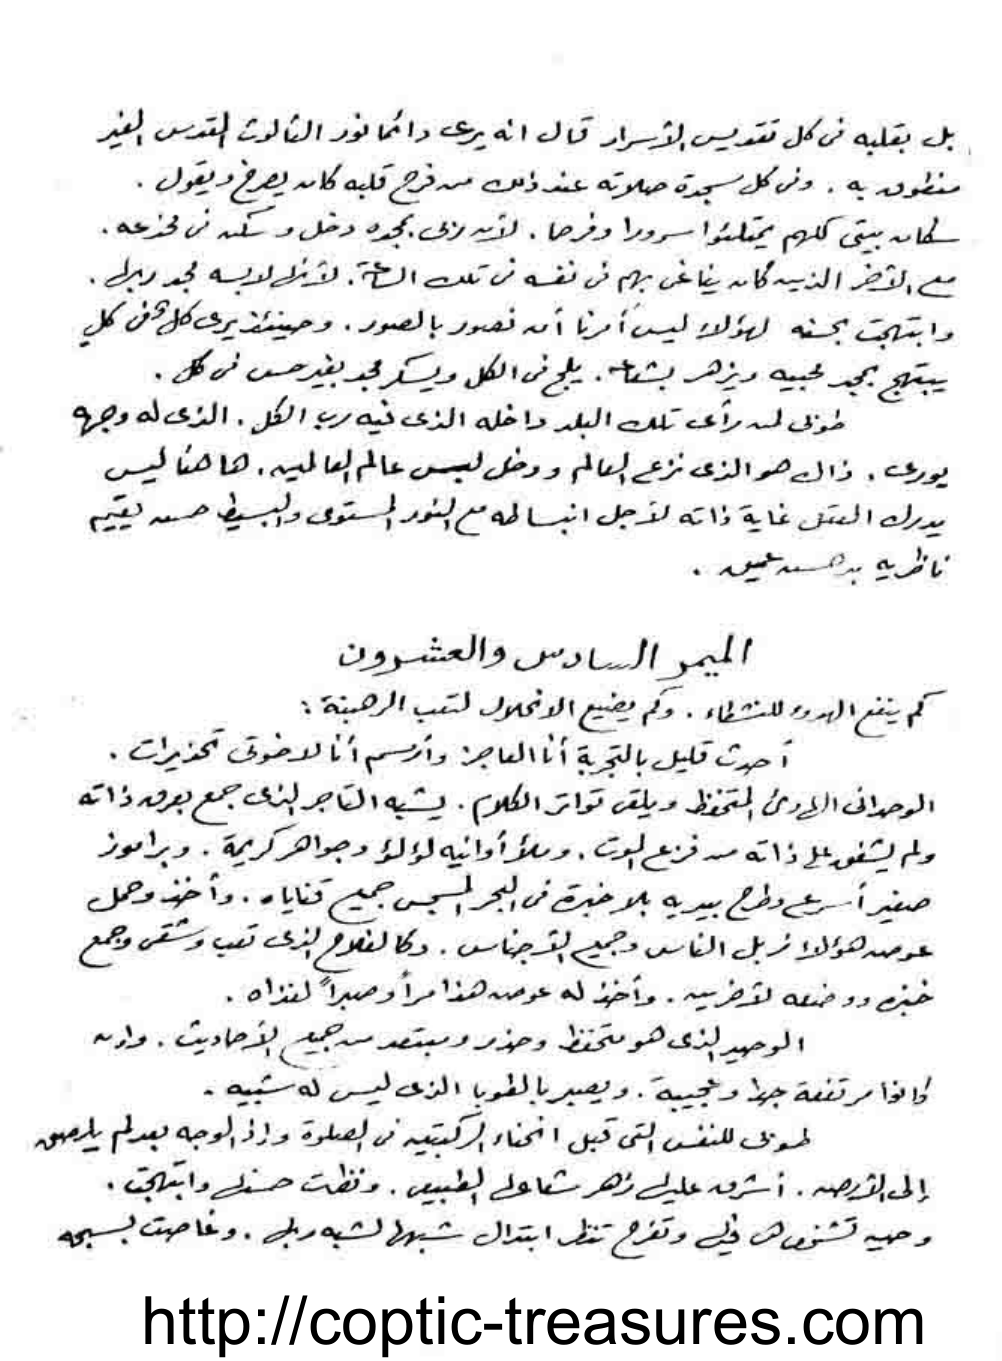 بل بقلبه فى كل تقديس الأسرار قال انه يرى دائما نور الثالوث المقدس الغير
منطوق به . وفى كل سجدة صلاته عند ذلك من فرح قلبه كان يصرخ ويقول .
سكان بيتى كلهم يمتلئوا سرورا وفرحا . لأن ربى بمجده دخل وسكن فى مخدعه .
مع الأخر الذين كان يناغى بهم فى نفسه فى تلك الساعة . لأنك لابسه مجد ربك .
وابتهجت بحسنه لهؤلاء ليس أمرنا أن نصور بالصور . وحينئذ يرى كل شئ فى كل
يبتهج بمجد محبيه ويزهر بشعاعه . يلج فى الكل ويسكر مجد بغير حس فى كل .
طوبى لمن رأى تلك البلد داخله الذى فيه رب الكل . الذى له وجهه
يورى . ذاك هو الذى نزع العالم ودخل لبس عالم العالمين . ها هنا ليس
يدرك العقل غاية ذاته لأجل انبساطه مع النور المستوى والبسيط حسن يقيم
ناظريه بدهش عميق .
الميمر السادس والعشرون
كم ينفع الهدوء للنشطاء . وكم يضيع الانحلال لتعب الرهبنة :
أحدث قليل بالتجربة أنا العاجز وأرسم أنا لاخوتى تحذيرات .
الوحدانى الهادئ المتحفظ ويلقى تواتر الكلام . يشبه التاجر الذى جمع بعرق ذاته
ولم يشفق على ذاته من فزع الموت . وملأ أوانيه لؤلؤ وجواهر كريمة . وبراموز
صغير أسرع وطرح بيديه بلا خبرة فى البحر المسجس جميع قناياه . وأخذ وحمل
عوض هؤلاء زبل الناس وجميع الأجناس . وكالفلاح الذى تعب وشقى وجمع
خبزه ووضعه لآخرين . وأخذ له عوض هذا مراً وصبراً لغذاه .
الوحيد الذى هو متحفظ وحذر ومبتعد من جميع الأحاديث . وان
كانوا مرتفعة جدا وعجيبة . ويصير بالطوبا الذى ليس له شبيه .
طوبى للنفس التى قبل انحناء الركبتين فى الصلوة واذ الوجه بعد لم يلصق
إلى الأرض . أشرق عليك زهر شعاعك الطبيعى . ونظرت حسنك وابتهجت .
وحين تشخص هى فيك وتفرح تنظر ابتدال شبهها لشبه ربك . وغاصت بسبحه
http://coptic-treasures.com